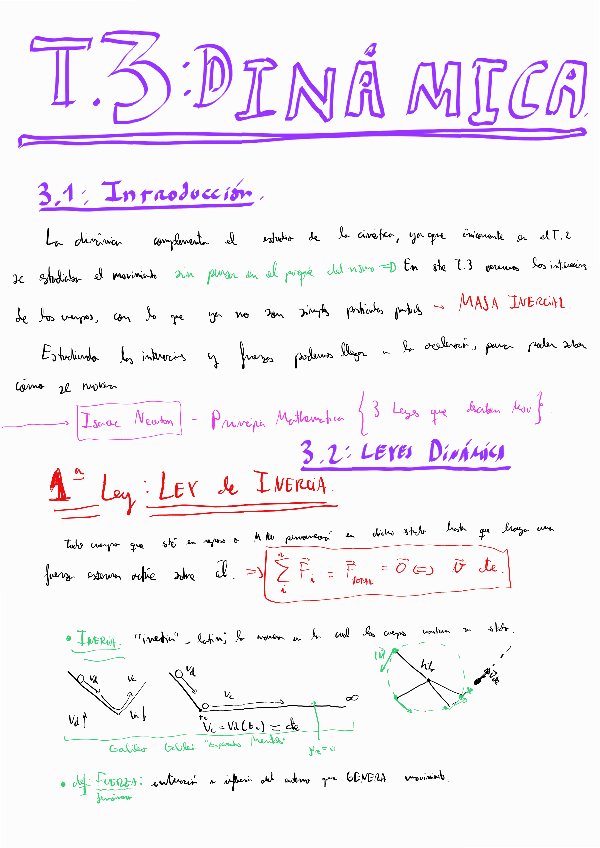 T.3: DINÁMICA
3.1: Introducción.
La dinámica complementa el estudio de la cinética, ya que únicamente en el T.2
se estudiaba el movimiento sin pensar en el porqué del mismo => En este T.3 veremos las interacciones
de los cuerpos, con lo que ya no son simples partículas → MASA INERCIAL
Estudiando las interacciones y fuerzas podemos llegar a la aceleración, para poder saber
cómo se mueven
→ Isaac Newton - Principia Mathematica { 3 Leyes que describen Mov }.
3.2: LEYES DINÁMICA
1ª Ley: LEY de INERCIA.
Todo cuerpo que esté en reposo o MRU permanecerá en dicho estado hasta que haya una
fuerza externa actúe sobre él. => Σ F⃗i = F⃗TOTAL = 0⃗ <=> v⃗ cte.
• INERCIA: "inertia", latín; la manera en la cual los cuerpos su estado.
Vd Vc Vd Vc ∞
Vd ↑ Vc ↓ Vc = Vd (tc) = cte
Galileo Galilei "Experimentos Mentales" = 0
• def: FUERZA: interacción o influencia del entorno que GENERA movimiento.